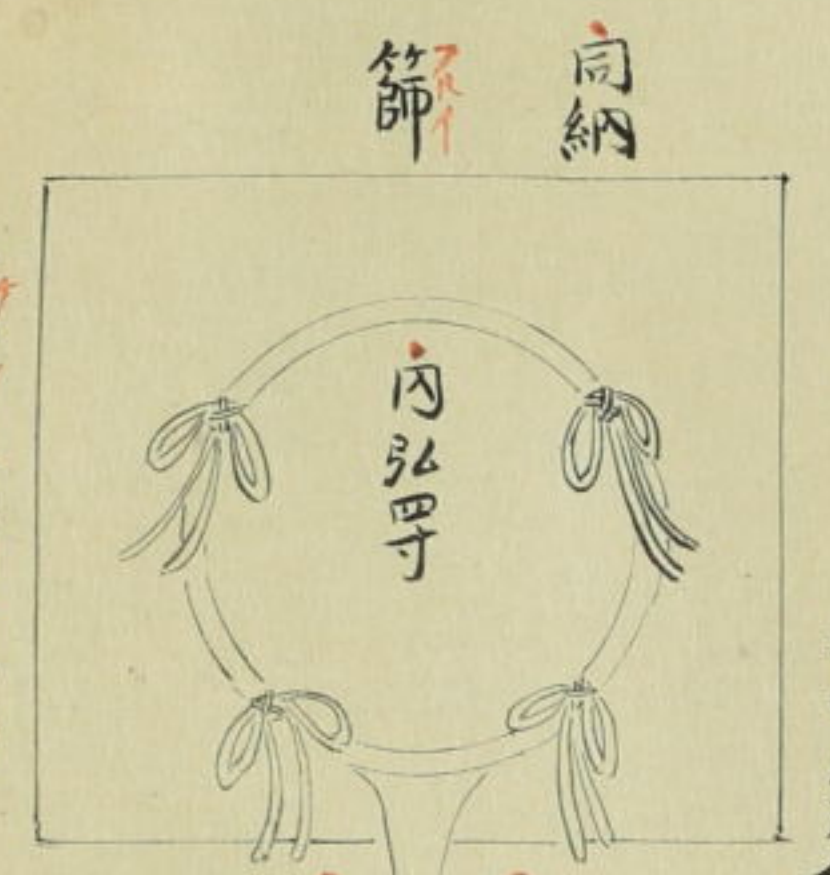 同納
篩 フルイ
内弘四寸